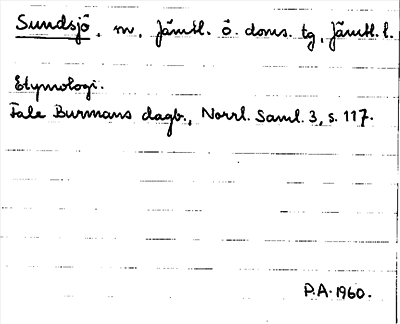 Sundsjö, m, Jämtl. ö. doms. tg, Jämtl. l.
Etymologi.
Fale Burmans dagb., Norrl. Saml. 3, s. 117.
P.A. 1960.